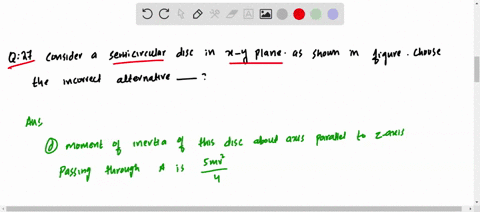 Q:27 Consider a semicircular disc in x-y plane. as shown in figure. Choose
the incorrect alternative __ ?
Ans
(d) moment of inertia of this disc about axis parallel to z-axis
Passing through A is 5mr²/4